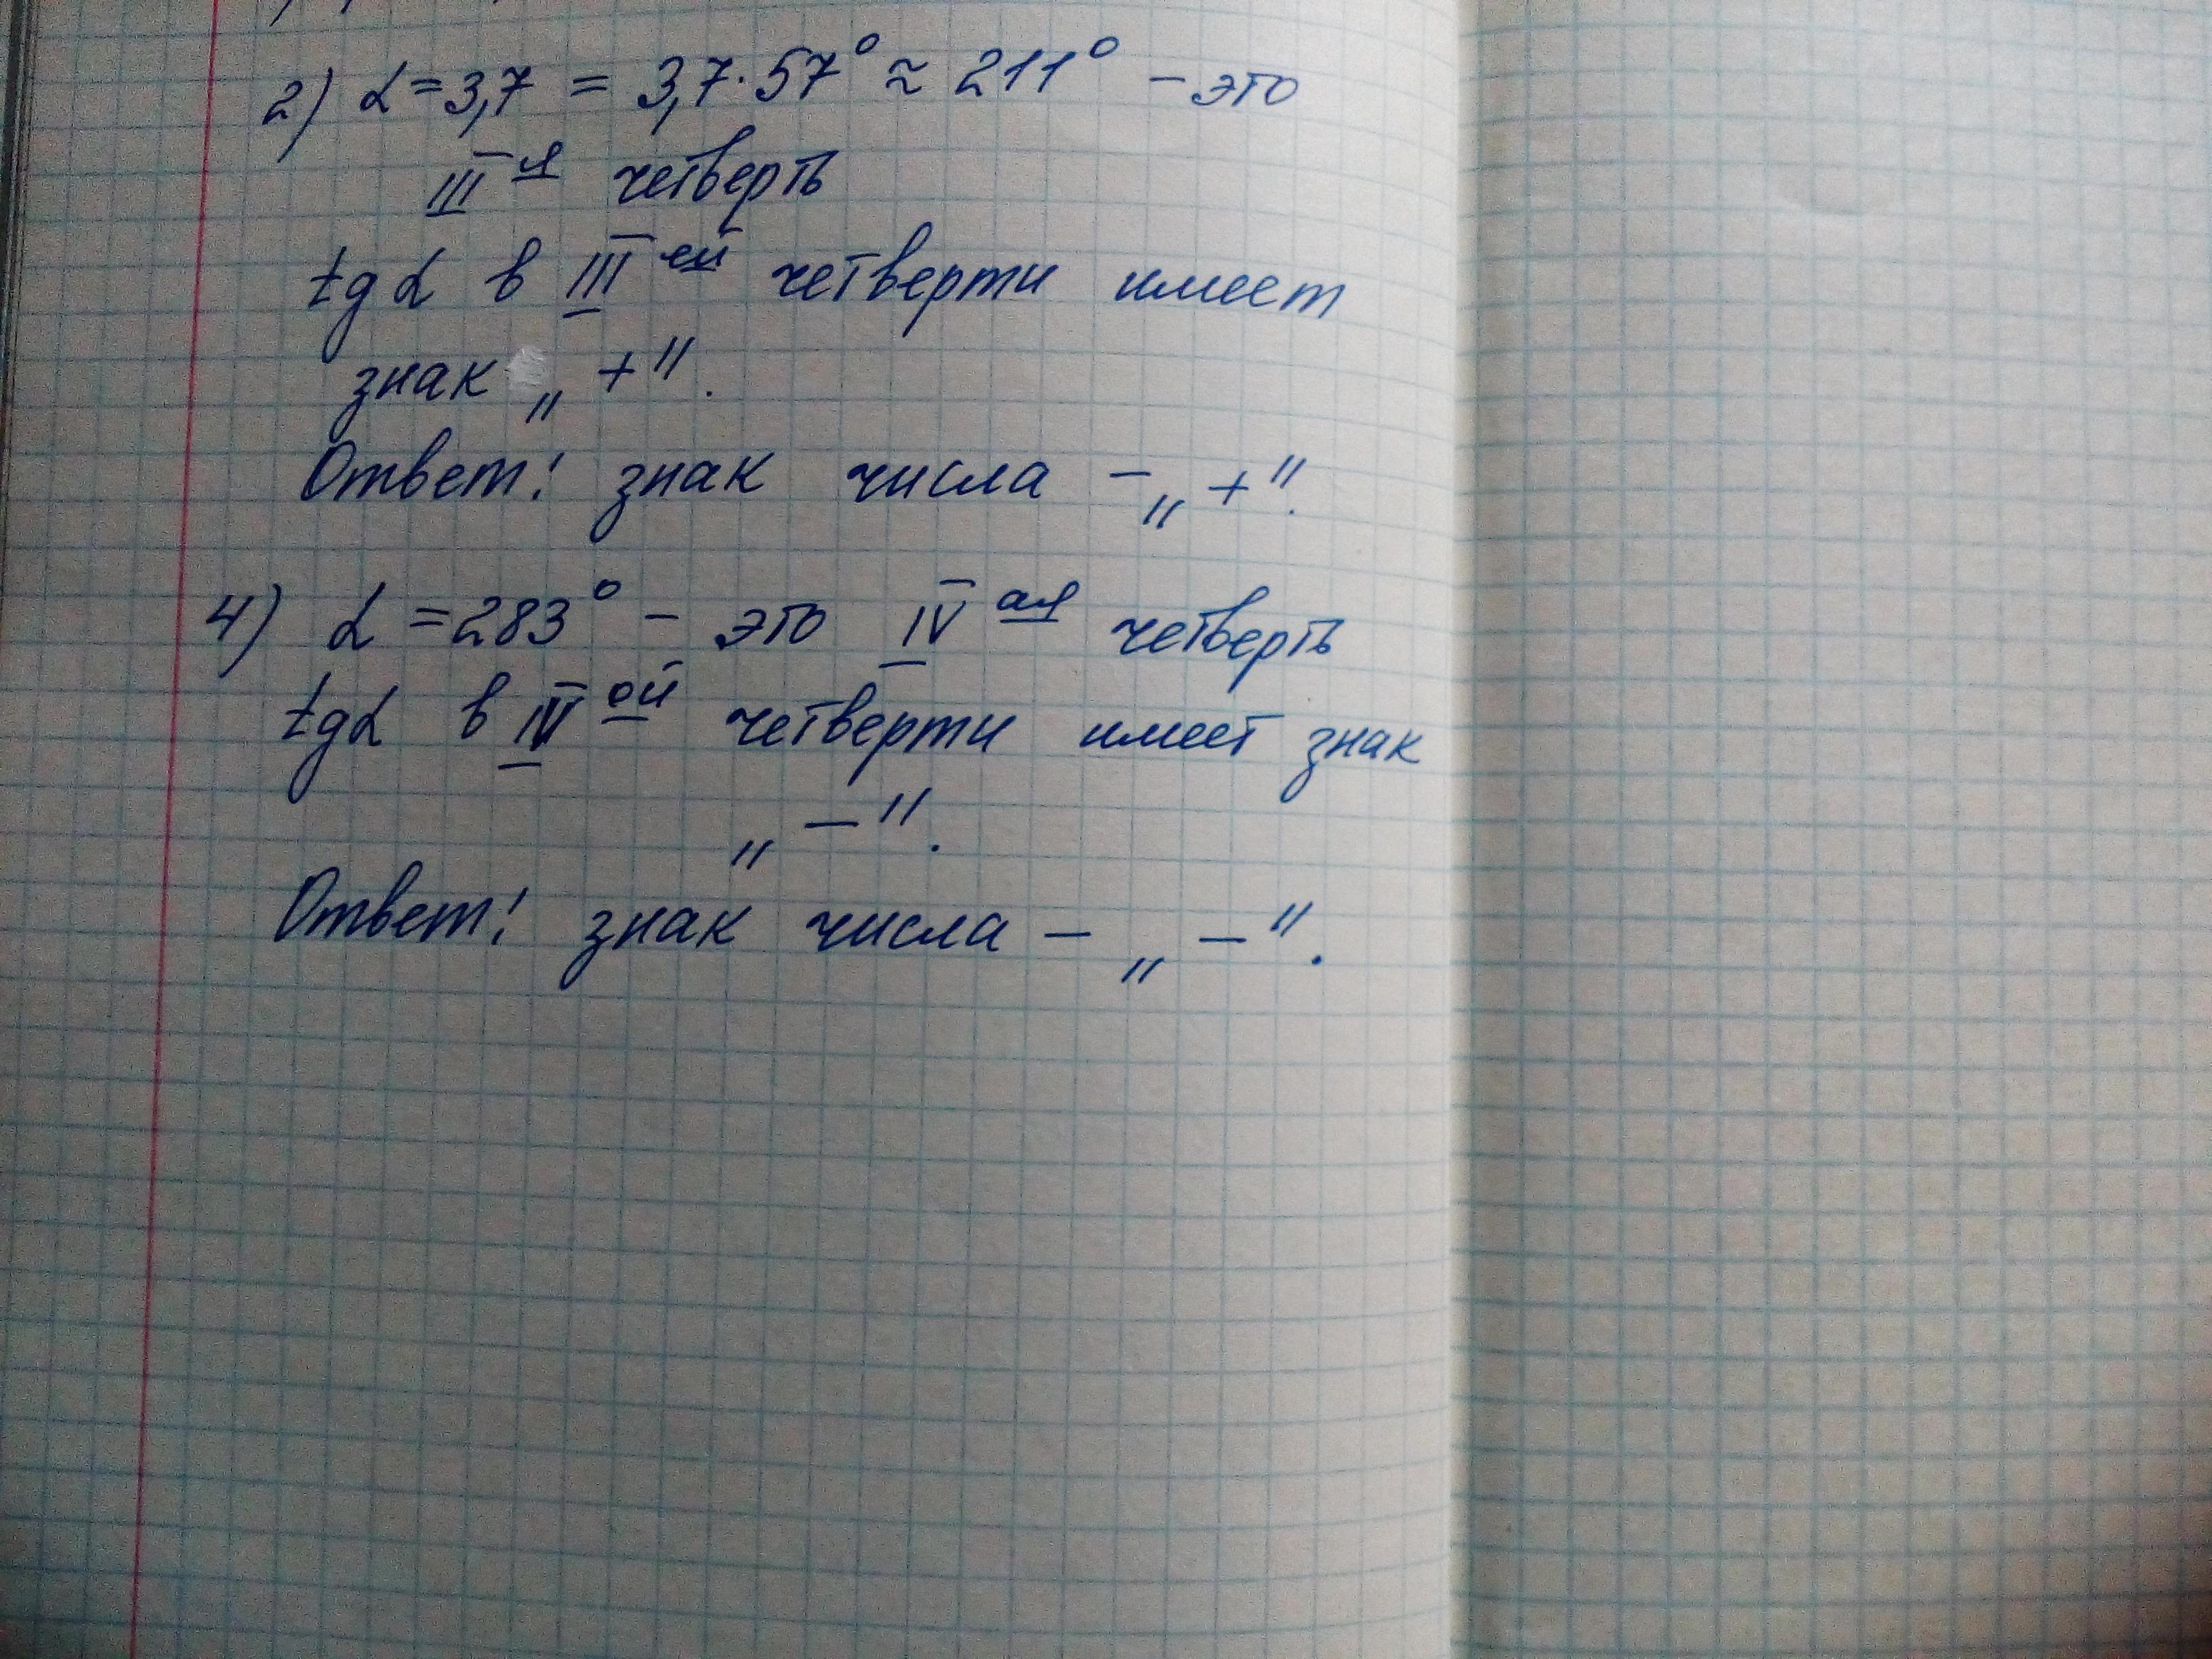 2) α = 3,7 = 3,7 · 57° ≈ 211° – это
III я четверть
tg α в III ей четверти имеет
знак „ + ".
Ответ: знак числа – „ + ".
4) α = 283° – это IV ая четверть
tg α в IV ой четверти имеет знак
„ – ".
Ответ: знак числа – „ – ".